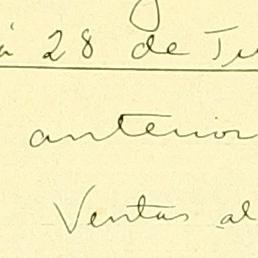 28 de
anterior
Ventas al